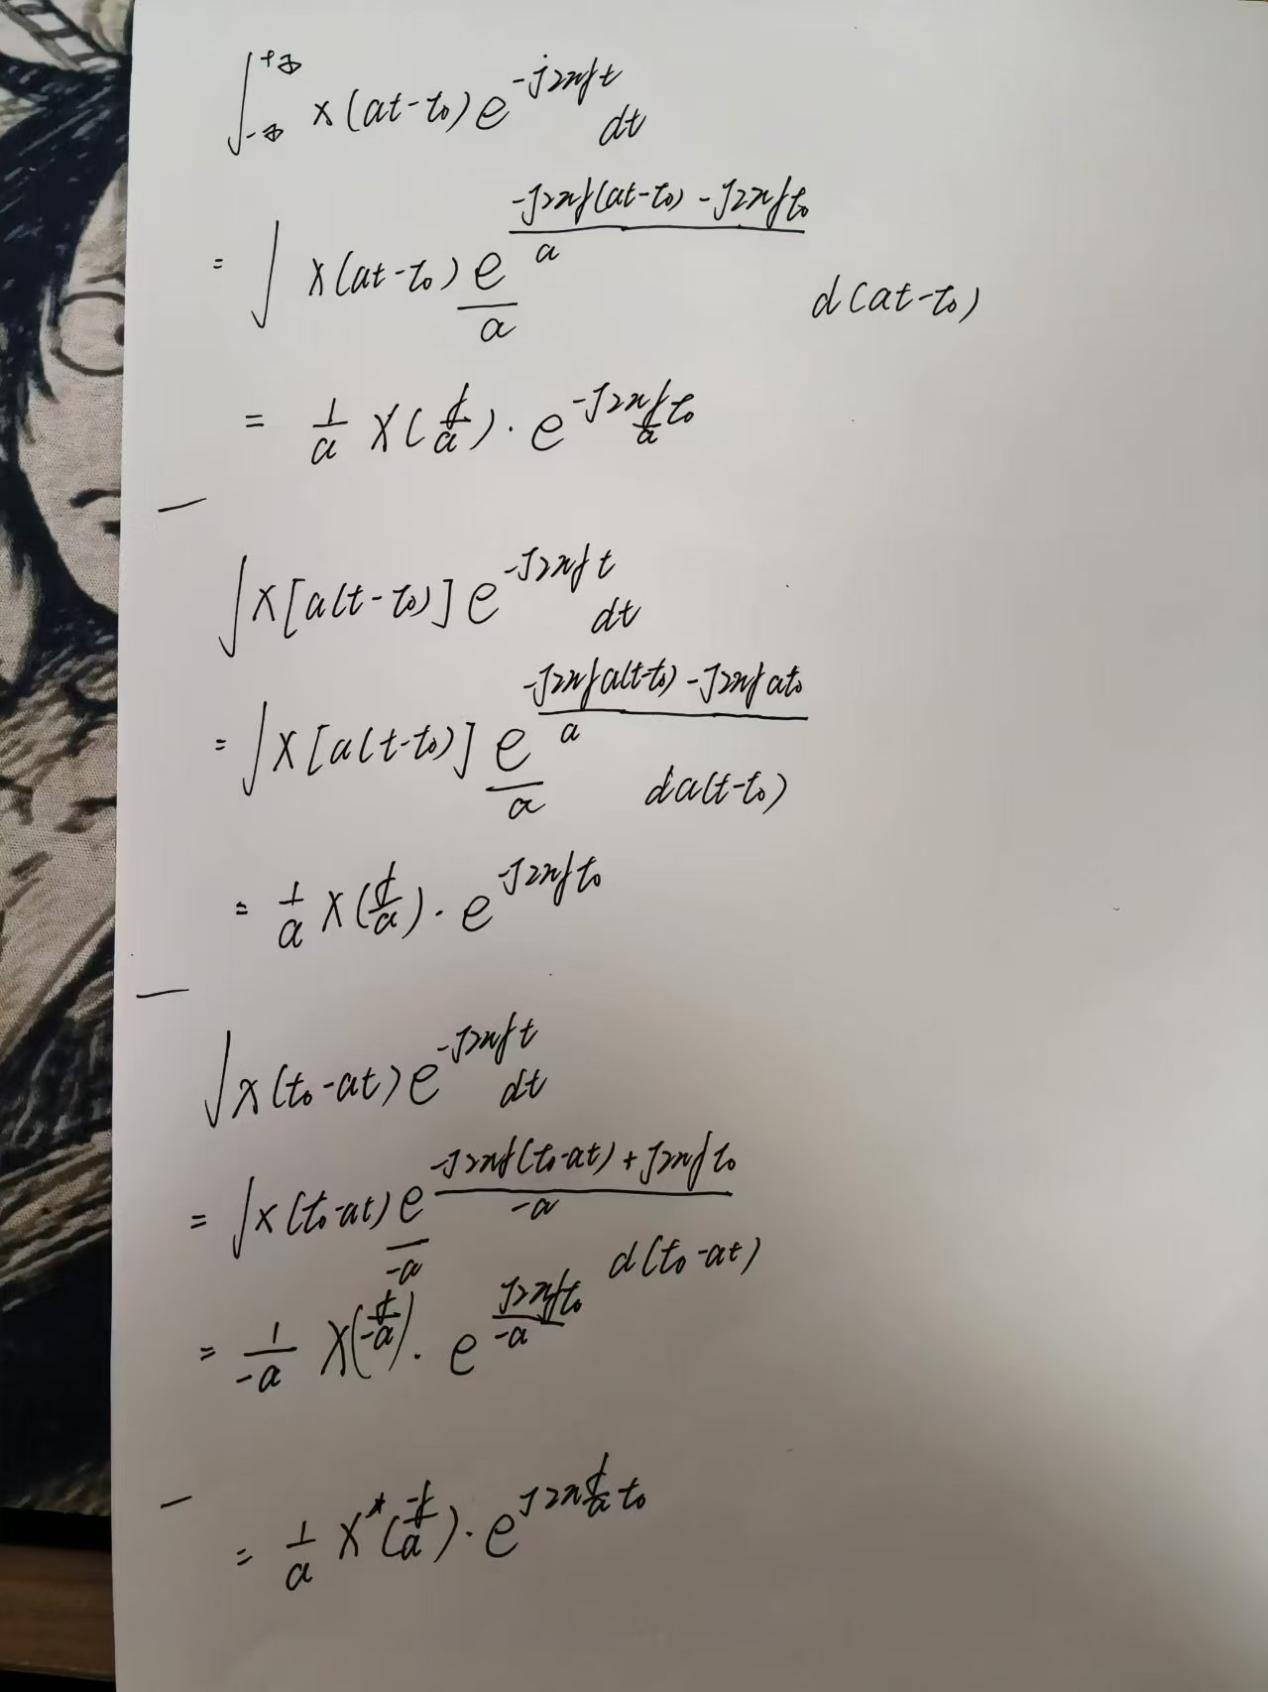 ∫_{-∞}^{+∞} x(at-t₀) e^{-j2πft} dt
= ∫ x(at-t₀) \frac{e^{\frac{-j2πf(at-t₀) - j2πft₀}{a}}}{a} d(at-t₀)
= \frac{1}{a} X(\frac{f}{a}) · e^{-j2π\frac{f}{a}t₀}
—
∫ x[a(t-t₀)] e^{-j2πft} dt
= ∫ x[a(t-t₀)] \frac{e^{\frac{-j2πfa(t-t₀) - j2πfat₀}{a}}}{a} da(t-t₀)
= \frac{1}{a} X(\frac{f}{a}) · e^{-j2πft₀}
—
∫ x(t₀-at) e^{-j2πft} dt
= ∫ x(t₀-at) \frac{e^{\frac{-j2πf(t₀-at) + j2πft₀}{-a}}}{-a} d(t₀-at)
= \frac{1}{-a} X(\frac{f}{-a}) · e^{\frac{j2πft₀}{-a}}
—
= \frac{1}{a} X^*(\frac{-f}{a}) · e^{j2π\frac{f}{a}t₀}